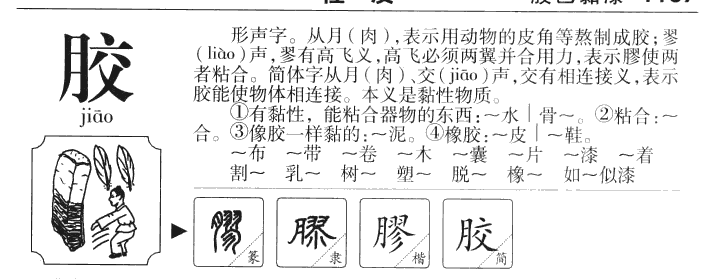 胶
jiāo
形声字。从月(肉),表示用动物的皮角等熬制成胶;翏
(liào)声,翏有高飞义,高飞必须两翼并合用力,表示膠使两
者粘合。简体字从月(肉)、交(jiāo)声,交有相连接义,表示
胶能使物体相连接。本义是黏性物质。
①有黏性,能粘合器物的东西:～水｜骨～。②粘合:～
合。③像胶一样黏的:～泥。④橡胶:～皮｜～鞋。
～布 ～带 ～卷 ～木 ～囊 ～片 ～漆 ～着
割～ 乳～ 树～ 塑～ 脱～ 橡～ 如～似漆
膠 篆
膠 隶
膠 楷
胶 简